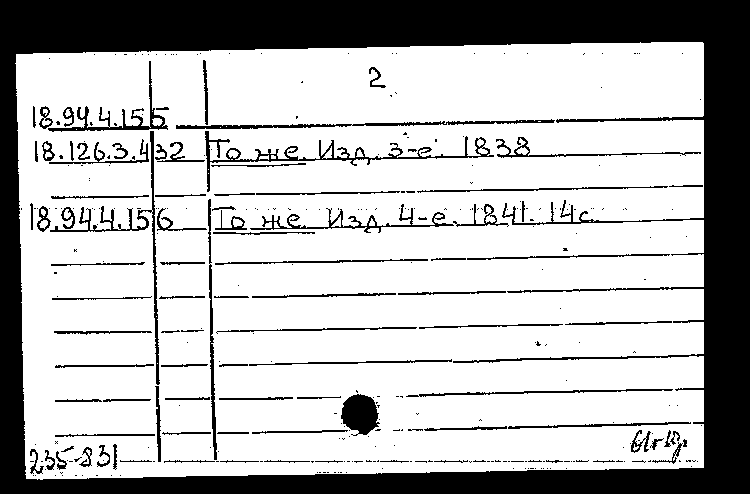 2
18.94.4.155
18.126.3.432 То же. Изд. 3-е. 1838
18.94.4.156 То же. Изд. 4-е. 1841. 14с.
235-831